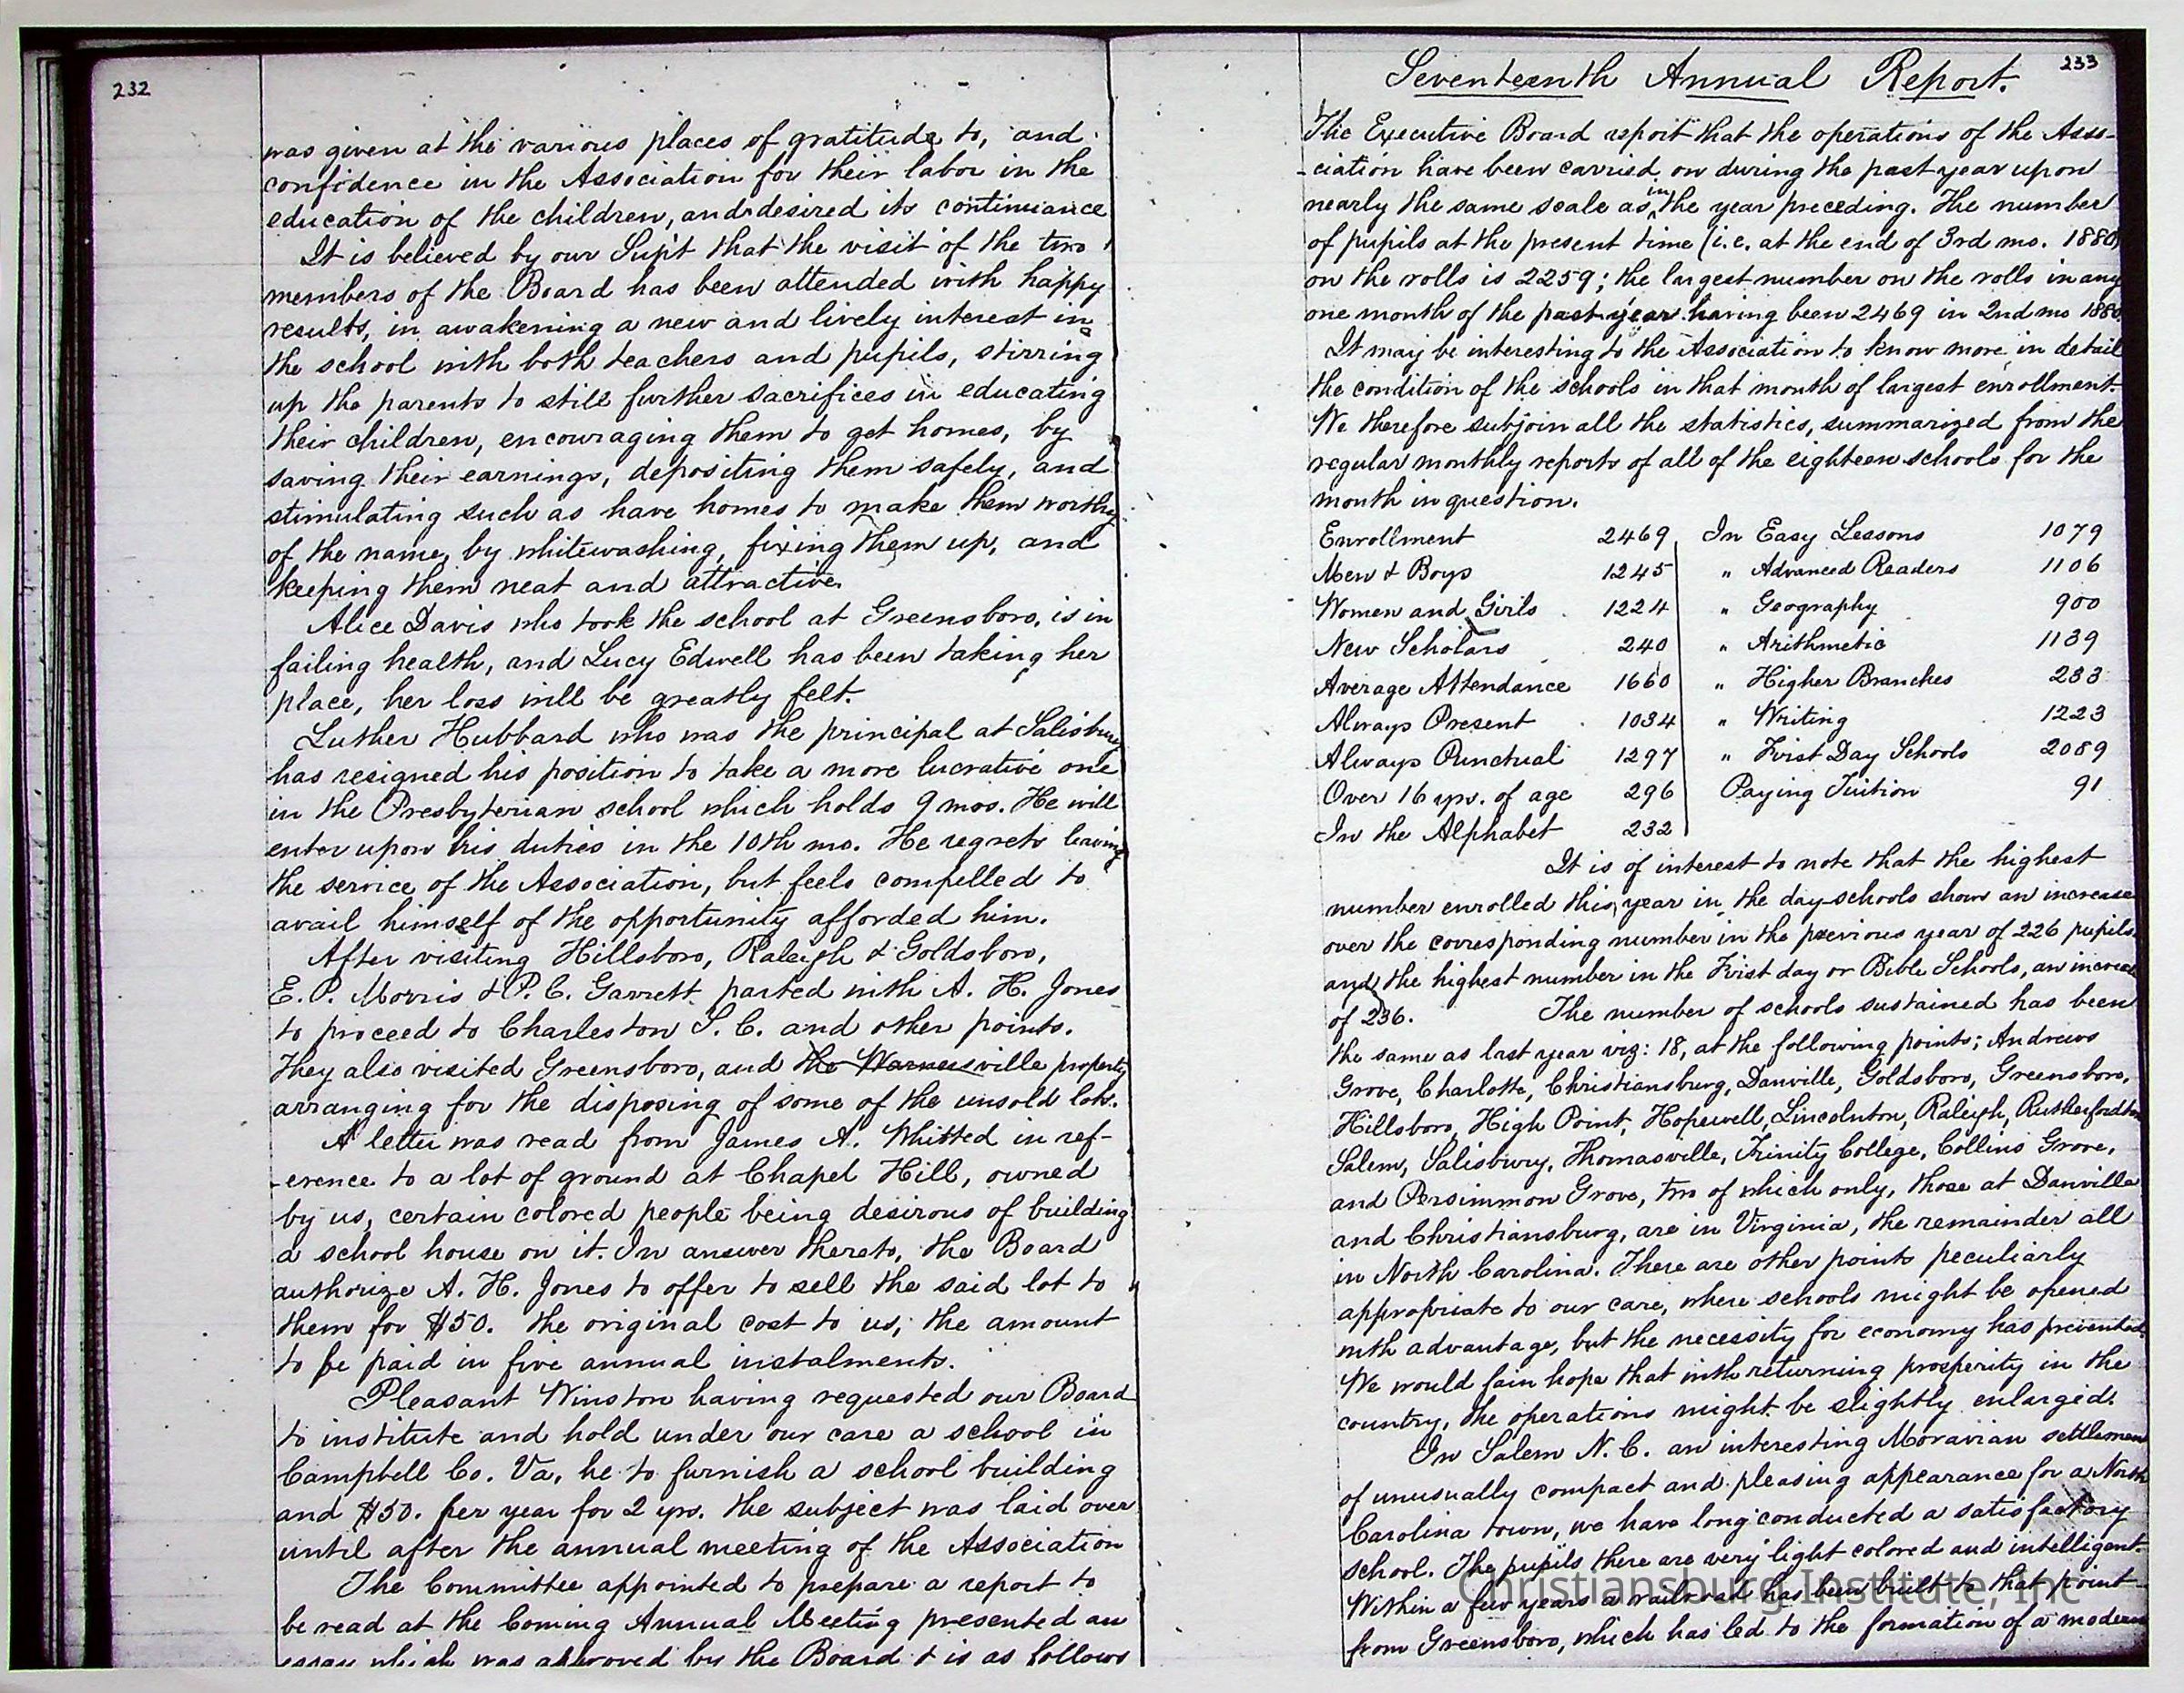 232
was given at the various places of gratitude to, and
confidence in the Association for their labor in the
education of the children, and desired its continuance
It is believed by our Sup't that the visit of the two
members of the Board has been attended with happy
results, in awakening a new and lively interest in
the school with both teachers and pupils, stirring
up the parents to still further sacrifices in educating
their children, encouraging them to get homes, by
saving their earnings, depositing them safely, and
stimulating such as have homes to make them worthy
of the name, by whitewashing, fixing them up, and
keeping them neat and attractive.
Alice Davis who took the school at Greensboro, is in
failing health, and Lucy Edwell has been taking her
place, her loss will be greatly felt.
Luther Hubbard who was the principal at Salisbury
has resigned his position to take a more lucrative one
in the Presbyterian school which holds 9 mos. He will
enter upon his duties in the 10th mo. He regrets leaving
the service of the Association, but feels compelled to
avail himself of the opportunity afforded him.
After visiting Hillsboro, Raleigh & Goldsboro,
E. P. Morris & P. C. Garrett parted with A. H. Jones
to proceed to Charleston S. C. and other points.
They also visited Greensboro, and the Warnersville property
arranging for the disposing of some of the unsold lots.
A letter was read from James A. Whitted in ref-
-erence to a lot of ground at Chapel Hill, owned
by us, certain colored people being desirous of building
a school house on it. In answer thereto, the Board
authorize A. H. Jones to offer to sell the said lot to
them for $50. the original cost to us; the amount
to be paid in five annual instalments.
Pleasant Winston having requested our Board
to institute and hold under our care a school in
Campbell Co. Va, he to furnish a school building
and $50. per year for 2 yrs. the subject was laid over
until after the annual meeting of the Association
The Committee appointed to prepare a report to
be read at the Coming Annual Meeting presented an
essay which was approved by the Board & is as follows
233
Seventeenth Annual Report.
The Executive Board report that the operations of the Asso-
-ciation have been carried on during the past year upon
nearly the same scale as in the year preceding. The number
of pupils at the present time (i.e. at the end of 3rd mo. 1880)
on the rolls is 2259; the largest number on the rolls in any
one month of the past year having been 2469 in 2nd mo 1880.
It may be interesting to the Association to know more in detail
the condition of the schools in that month of largest enrollment.
We therefore subjoin all the statistics, summarized from the
regular monthly reports of all of the eighteen schools for the
month in question.
Enrollment 2469 In Easy Lessons 1079
Men & Boys 1245 " Advanced Readers 1106
Women and Girls 1224 " Geography 900
New Scholars 240 " Arithmetic 1139
Average Attendance 1660 " Higher Branches 233
Always Present 1034 " Writing 1223
Always Punctual 1297 " First Day Schools 2089
Over 16 yrs. of age 296 Paying Tuition 91
In the Alphabet 232
It is of interest to note that the highest
number enrolled this year in the day-schools shows an increase
over the corresponding number in the previous year of 226 pupils
and the highest number in the First day or Bible Schools, an increase
of 236. The number of schools sustained has been
the same as last year viz: 18, at the following points; Andrews
Grove, Charlotte, Christiansburg, Danville, Goldsboro, Greensboro,
Hillsboro, High Point, Hopewell, Lincolnton, Raleigh, Rutherfordton
Salem, Salisbury, Thomasville, Trinity College, Collins Grove,
and Persimmon Grove, two of which only, those at Danville
and Christiansburg, are in Virginia, the remainder all
in North Carolina. There are other points peculiarly
appropriate to our care, where schools might be opened
with advantage, but the necessity for economy has prevented
We would fain hope that with returning prosperity in the
country, the operations might be slightly enlarged.
In Salem N. C. an interesting Moravian settlement
of unusually compact and pleasing appearance for a North
Carolina town, we have long conducted a satisfactory
school. The pupils there are very light colored and intelligent.
Within a few years a railroad has been built to that point
from Greensboro, which has led to the formation of a modern
Christiansburg Institute, Inc